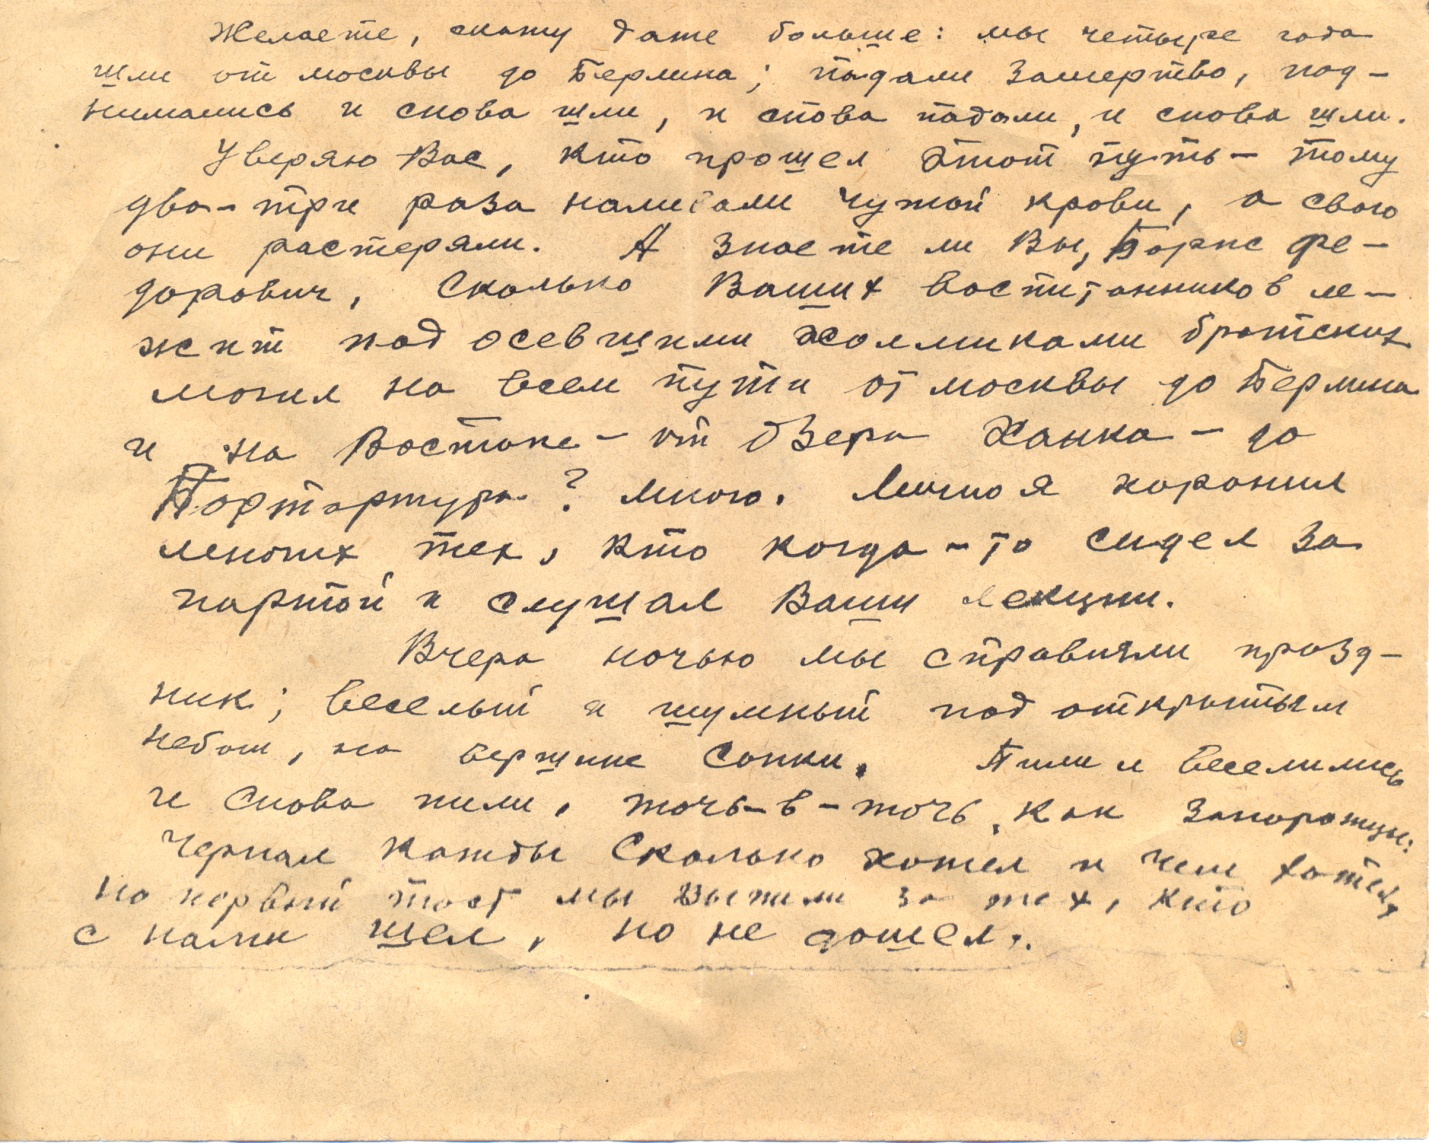 Желаете, скажу даже больше: мы четыре года
шли от москвы до Берлина; падали замертво, под-
нимались и снова шли, и снова падали, и снова шли.
Уверяю Вас, кто прошел этот путь – тому
два-три раза наливали чужой крови, а свою
они растеряли. А знаете ли Вы, Борис Фе-
дорович, сколько Ваших воспитанников ле-
жит под осевшими холмиками братских
могил на всем пути от москвы до Берлина
и на Востоке – от Озера Ханка – до
Портартура? много. Лично я хоронил
многих тех, кто когда-то сидел за
партой и слушал Ваши лекции.
Вчера ночью мы справляли празд-
ник; веселый и шумный под открытым
небом, на вершине сопки. Пили и веселились
и снова пили, точь-в-точь, как запорожцы:
Черпал кажды сколько хотел и чем хотел,
но первый тост мы выпили за тех, кто
с нами шел, но не дошел.